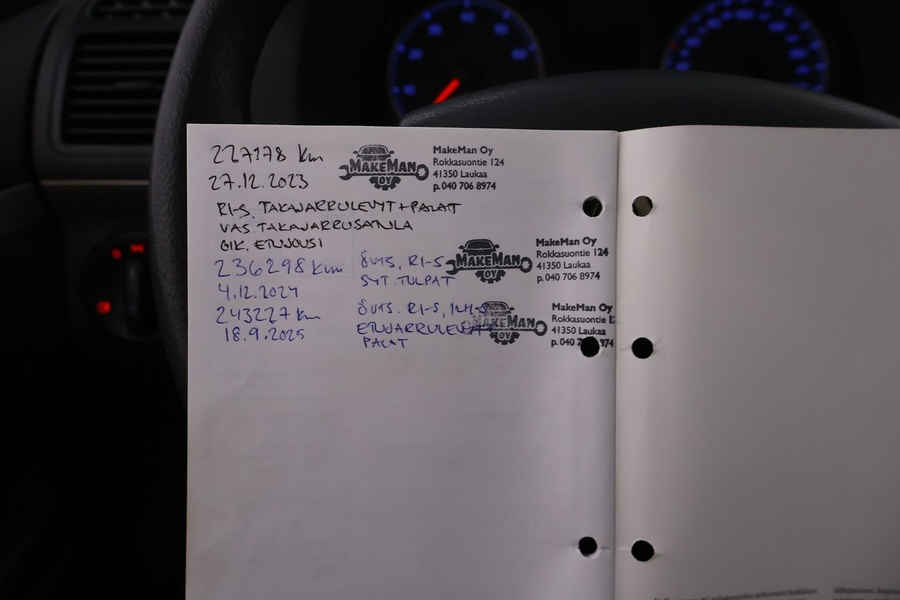 227178 km
27.12.2023
MAKEMAN OY
MakeMan Oy
Rokkasuontie 124
41350 Laukaa
p. 040 706 8974
RI-S, TAKAJARRULEVYT + PALAT
VAS. TAKAJARRUSATULA
OIK. ETUJOUSI
236298 km
4.12.2024
RI-S
SYT. TULPAT
MAKEMAN OY
MakeMan Oy
Rokkasuontie 124
41350 Laukaa
p. 040 706 8974
243227 km
18.9.2025
RI-S, ILM-S
ETUJARRULEVYT
PALAT
MAKEMAN OY
MakeMan Oy
Rokkasuontie
41350 Laukaa
p. 040